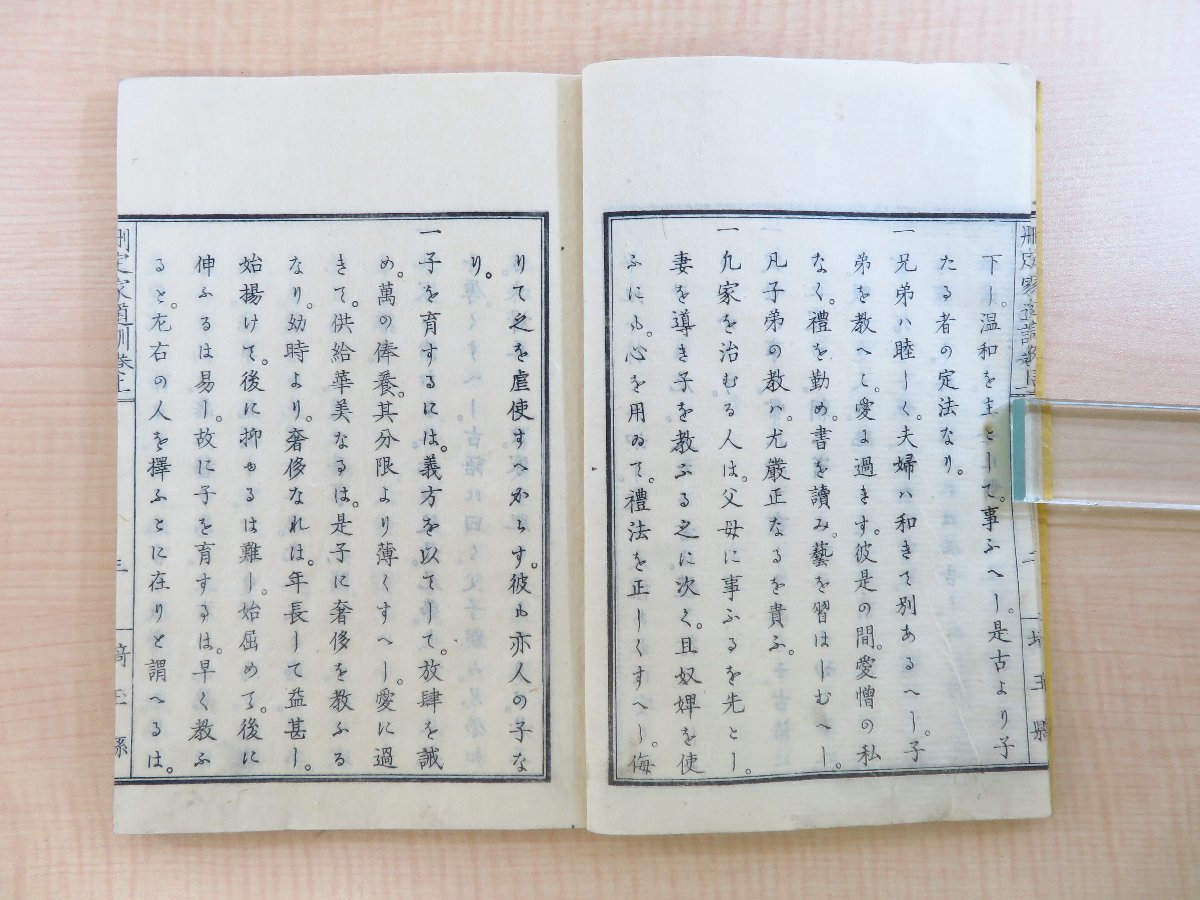 下し。温和を主として。事ふへし。是古より子
たる者の定法なり。
一兄弟ハ睦しく。夫婦ハ和きて別あるへし。子
弟を教へて。愛よ過きす。彼是の間。愛憎の私
なく。禮を勤め。書を讀み。藝を習はしむへし。
凡子弟の教ハ。尤嚴正なるを貴ふ。
一凢家を治むる人は。父母に事ふるを先とし。
妻を導き子を教ふる之に次く。且奴婢を使
ふにも。心を用ゐて。禮法を正しくすへし。侮
りて之を虐使すへからす。彼も亦人の子な
り。
一子を育するには。義方を以てして。放肆を誡
め。萬の俸養。其分限より薄くすへし。愛に過
きて。供給華美なるは。是子に奢侈を教ふる
なり。幼時より。奢侈なれは。年長して益甚し。
始揚けて。後に抑ゆるは難し。始屈めて。後に
伸ふるは易し。故に子を育するは。早く教ふ
ると。左右の人を擇ふとに在りと謂へるは。
刪定家道訓卷之上
三
埼玉縣